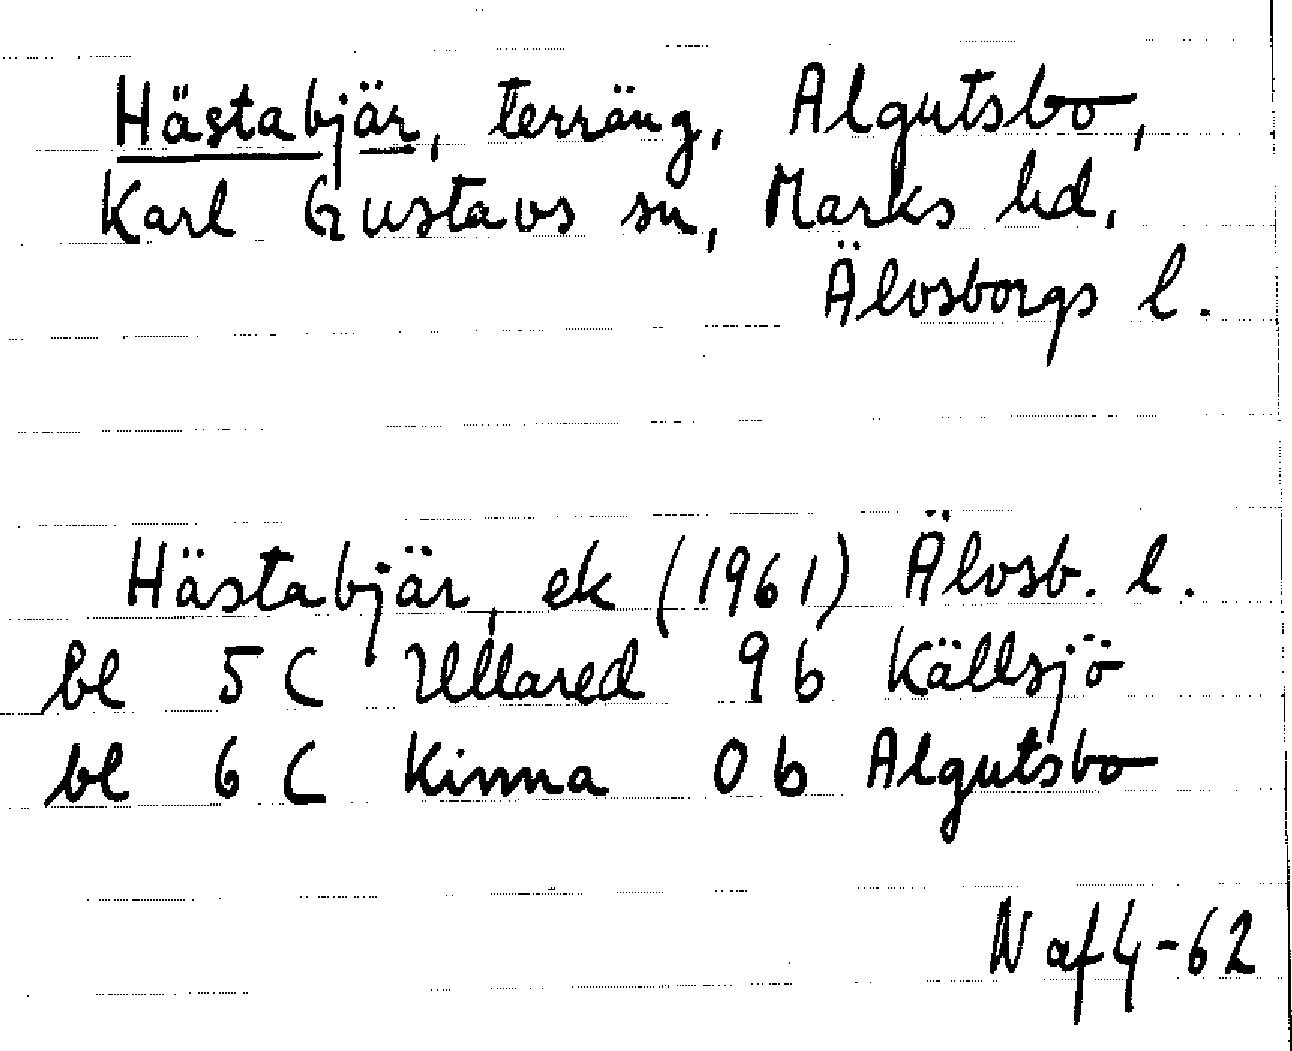 Hästabjär, terräng, Algutsbo,
Karl Gustavs sn, Marks hd,
Älvsborgs l.
Hästabjär, ek (1961) Älvsb. l.
bl 5 C Ullared 9 b Källsjö
bl 6 C Kinna 0 b Algutsbo
N af 4-62